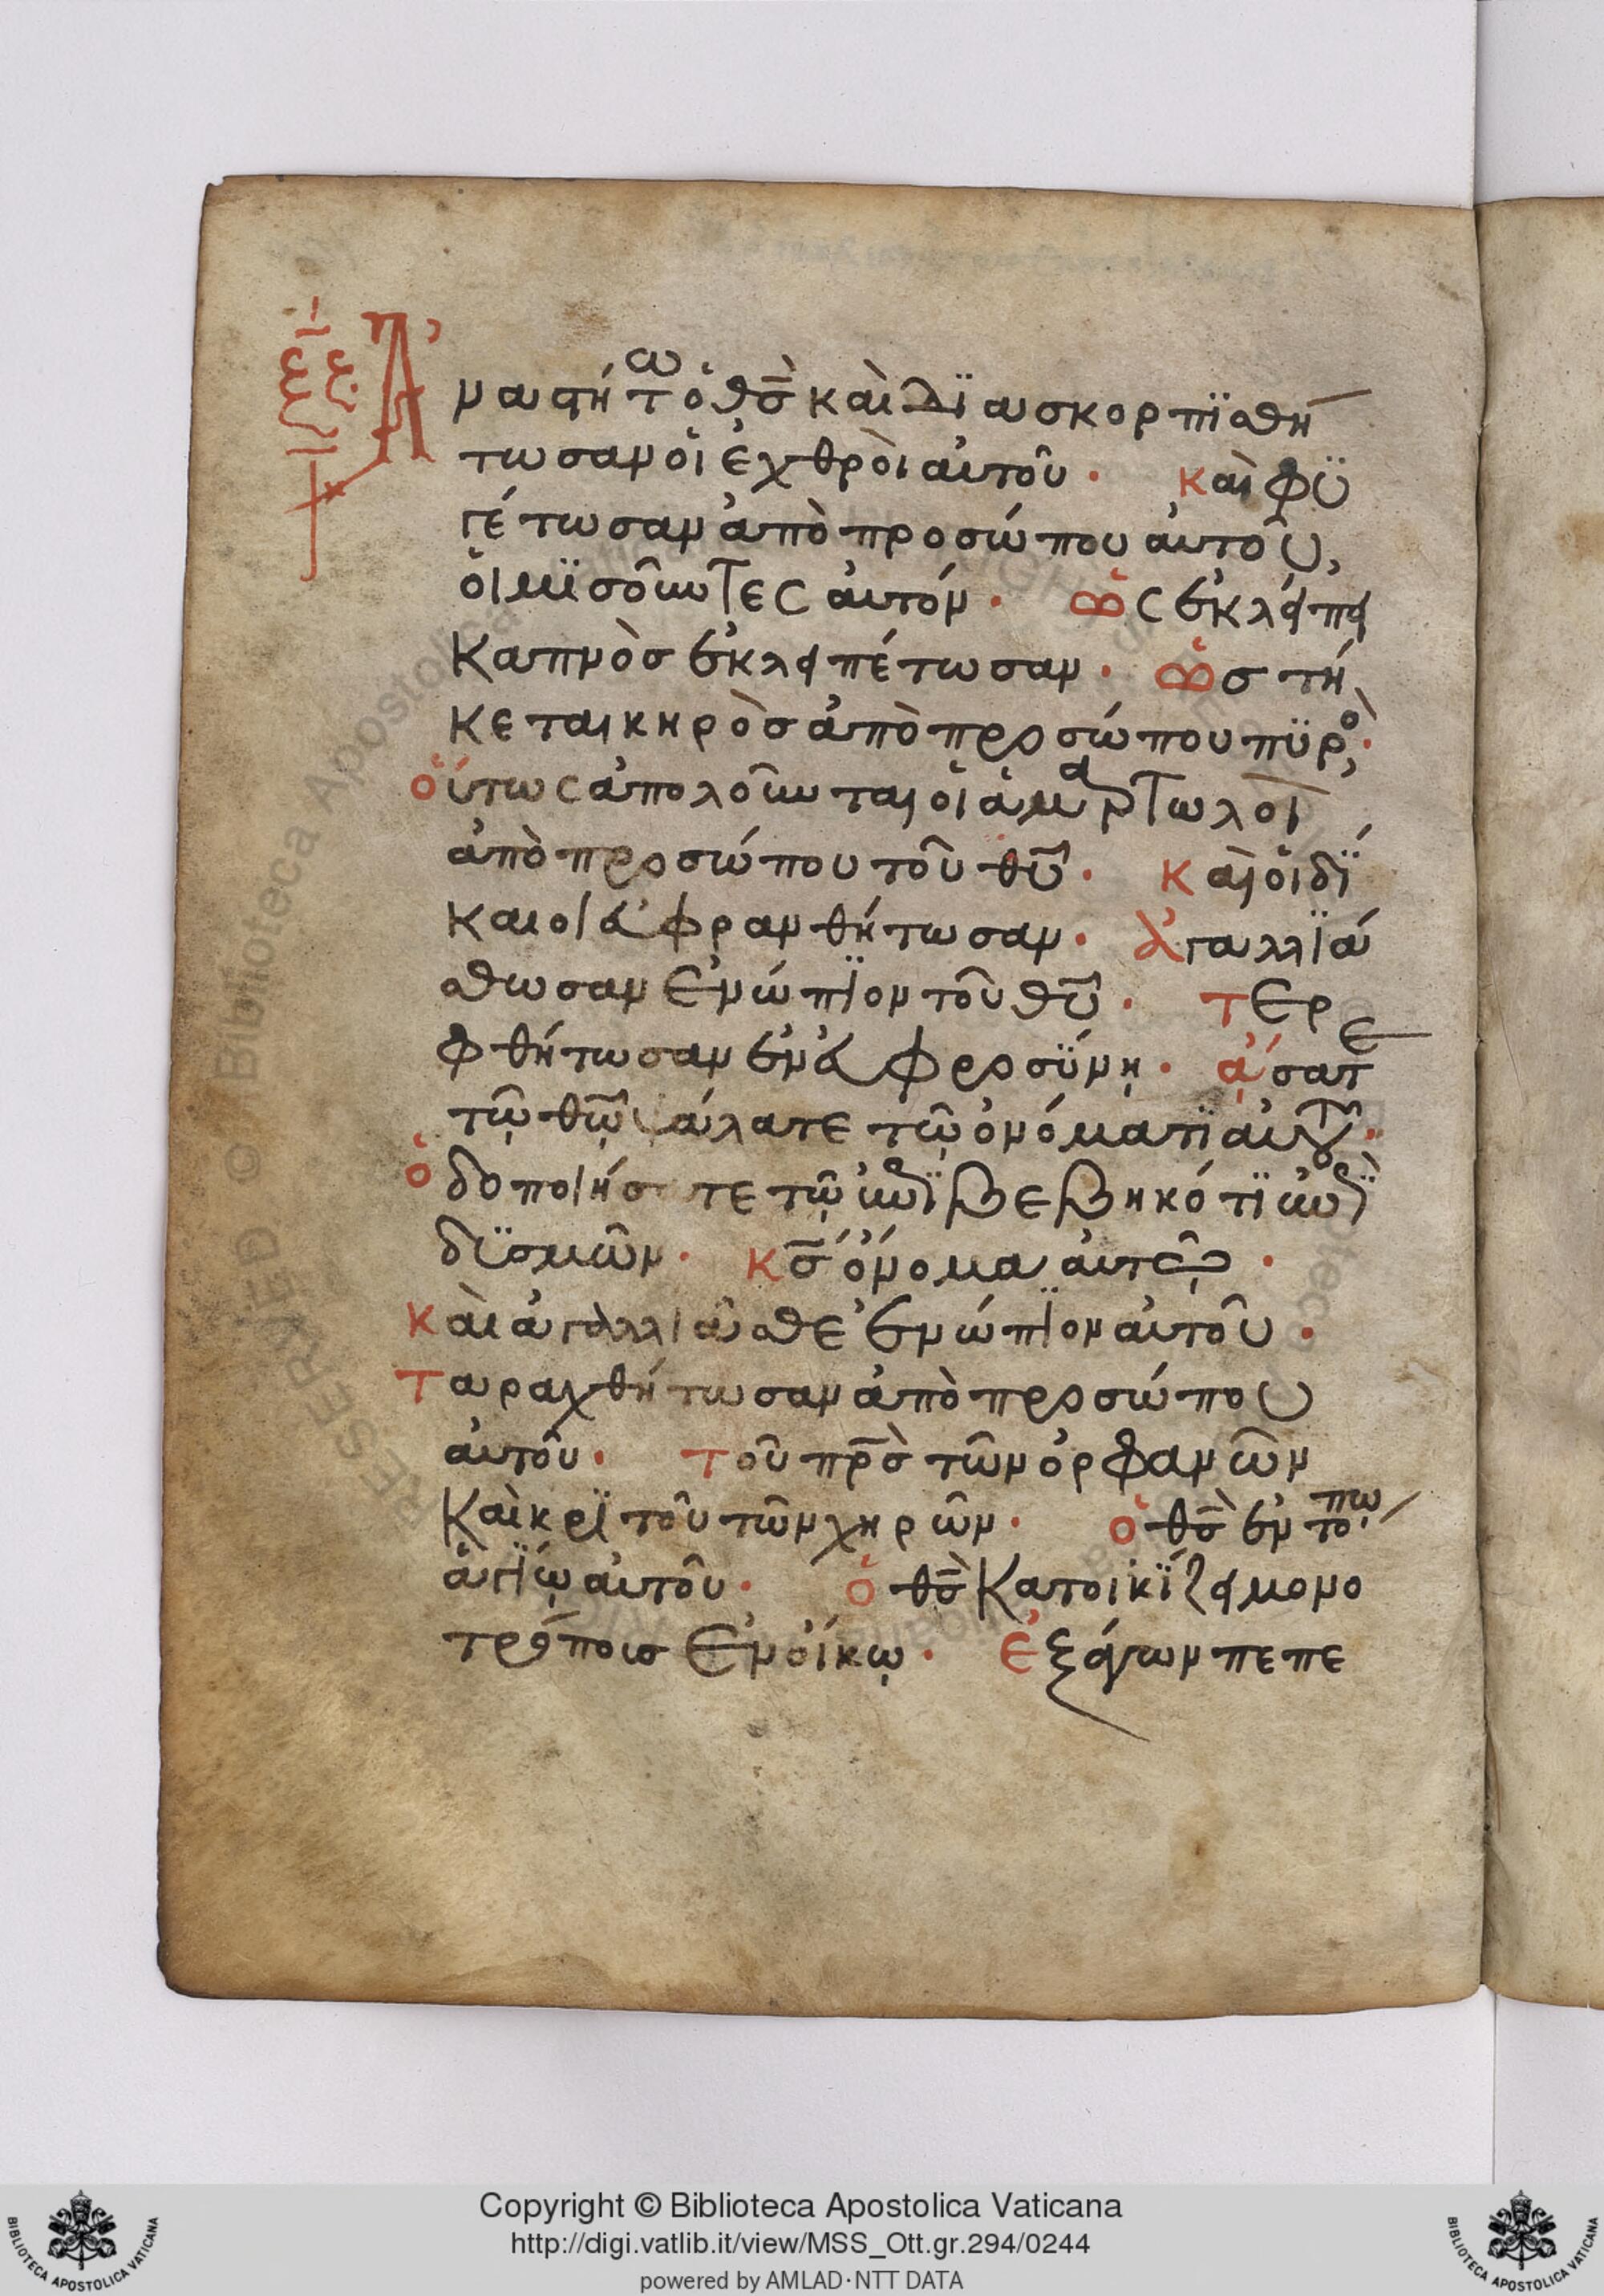 ξζ
Ἀναστήτω ὁ θς̅ καὶ διασκορπϊσθή
τωσαν οἱ ἐχθροὶ αὐτοῦ · καὶ φϋ
γέτωσαν ἀπὸ προσώπου αὐτοῦ,
οἱ μϊσοῦντες αὐτόν · ὡς ἐκλείπει
καπνὸσ ἐκλειπέτωσαν · ὡσ τή
κεται κηρὸσ ἀπὸ προσώπου πϋρὸς ·
οὕτως ἀπολοῦνται οἱ ἁμαρτωλοὶ
ἀπὸ προσώπου τοῦ θυ̅ · καὶ οἱ δί
καιοι εὐφρανθήτωσαν · ἀγαλλϊά
σθωσαν ἐνώπϊον τοῦ θυ̅ · τερ
φθήτωσαν ἐν εὐφροσΰνῃ · ᾄσατε
τῷ θῷ̅ ψάλατε τῷ ὀνόματϊ αὐτοῦ ·
ὁδοποιήσατε τῷ ἐπϊβεβηκότϊ ἐπὶ
δϋσμῶν · κς̅ ὄνομα αὐτῷ ·
καὶ ἀγαλλιᾶσθε ἐνώπϊον αὐτοῦ ·
ταραχθήτωσαν ἀπὸ προσώπου
αὐτοῦ · τοῦ πρς̅ τῶν ὀρφανῶν
καὶ κρϊτοῦ τῶν χηρῶν · ὁ θς̅ ἐν τόπω
ἁγΐῳ αὐτοῦ · ὁ θς̅ κατοικΐζει μονο
τρόπουσ ἐν οἴκῳ · ἐξάγων πεπε
Copyright © Biblioteca Apostolica Vaticana
http://digi.vatlib.it/view/MSS_Ott.gr.294/0244
powered by AMLAD·NTT DATA
BIBLIOTECA APOSTOLICA VATICANA
BIBLIOTECA APOSTOLICA VATICANA